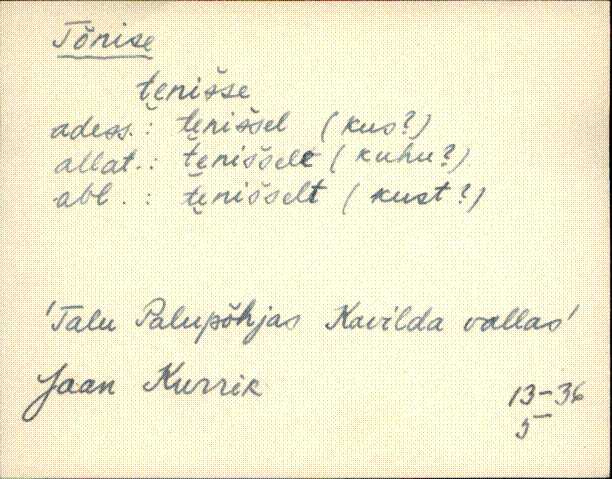 Tõnise
tenišse
adess.: tenišsel (kus?)
allat.: tenišsele (kuhu?)
abl.: tenišselt (kust?)
'Talu Palupõhjas Kavilda vallas'
Jaan Kurrik
13-36
5